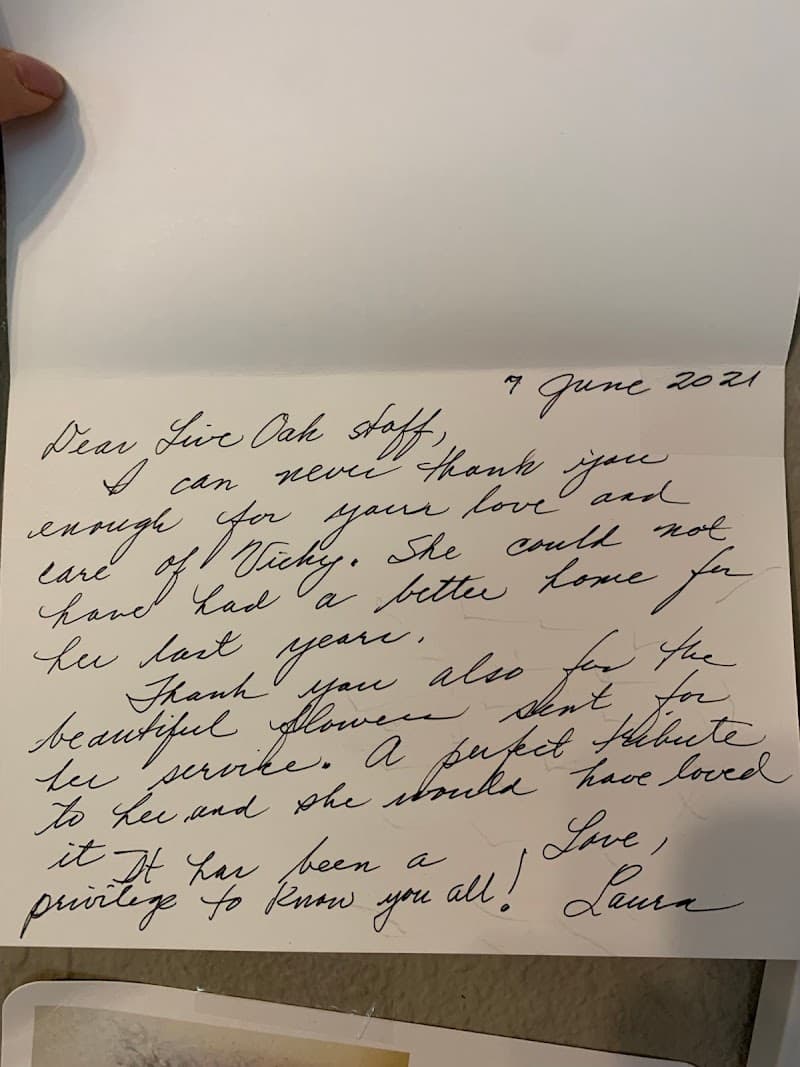 7 June 2021
Dear Live Oak staff,
I can never thank you
enough for your love and
care of Vicky. She could not
have had a better home for
her last years.
Thank you also for the
beautiful flowers sent for
her service. A perfect tribute
to her and she would have loved
it
It has been a
privilege to know you all!
Love,
Laura